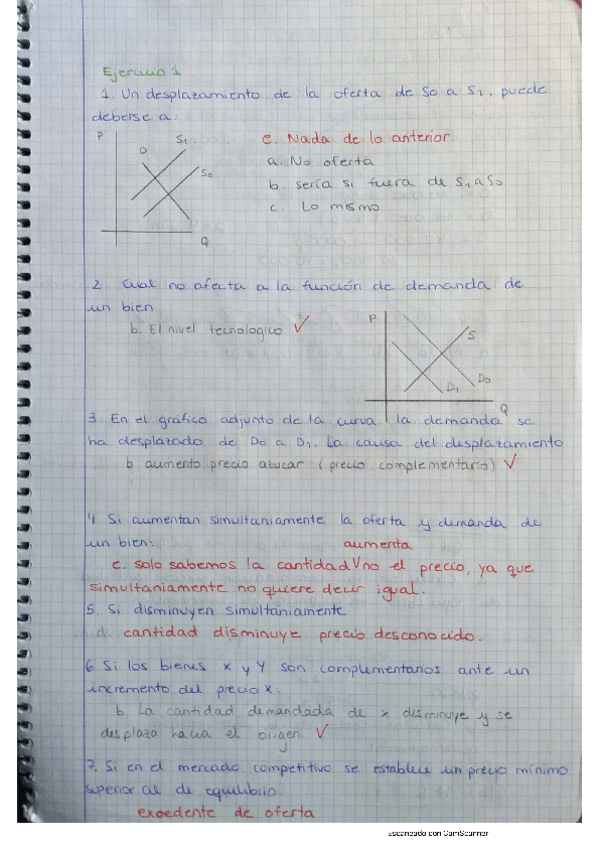 Ejercicio 1
1. Un desplazamiento de la oferta de S0 a S1, puede
deberse a:
P
D
S1
S0
Q
e. Nada de lo anterior.
a. No oferta
b. sería si fuera de S1 a S0
c. Lo mismo
2. Cual no afecta a la función de demanda de
un bien
b. El nivel tecnologico ✓
P
S
D0
D1
Q
3. En el gráfico adjunto de la curva la demanda se
ha desplazado de D0 a D1. La causa del desplazamiento
b aumento precio azucar (precio complementario) ✓
4 Si aumentan simultaniamente la oferta y demanda de
un bien:
aumenta
c. solo sabemos la cantidad V no el precio, ya que
simultaniamente no quiere decir igual.
5. Si disminuyen simultániamente
d. cantidad disminuye precio desconocido.
6 Si los bienes x y Y son complementarios ante un
incremento del precio x:
b. La cantidad demandada de x disminuye y se
desplaza hacia el origen ✓
7. Si en el mercado competitivo se establece un precio mínimo
superior al de equilibrio.
excedente de oferta
Escaneado con CamScanner